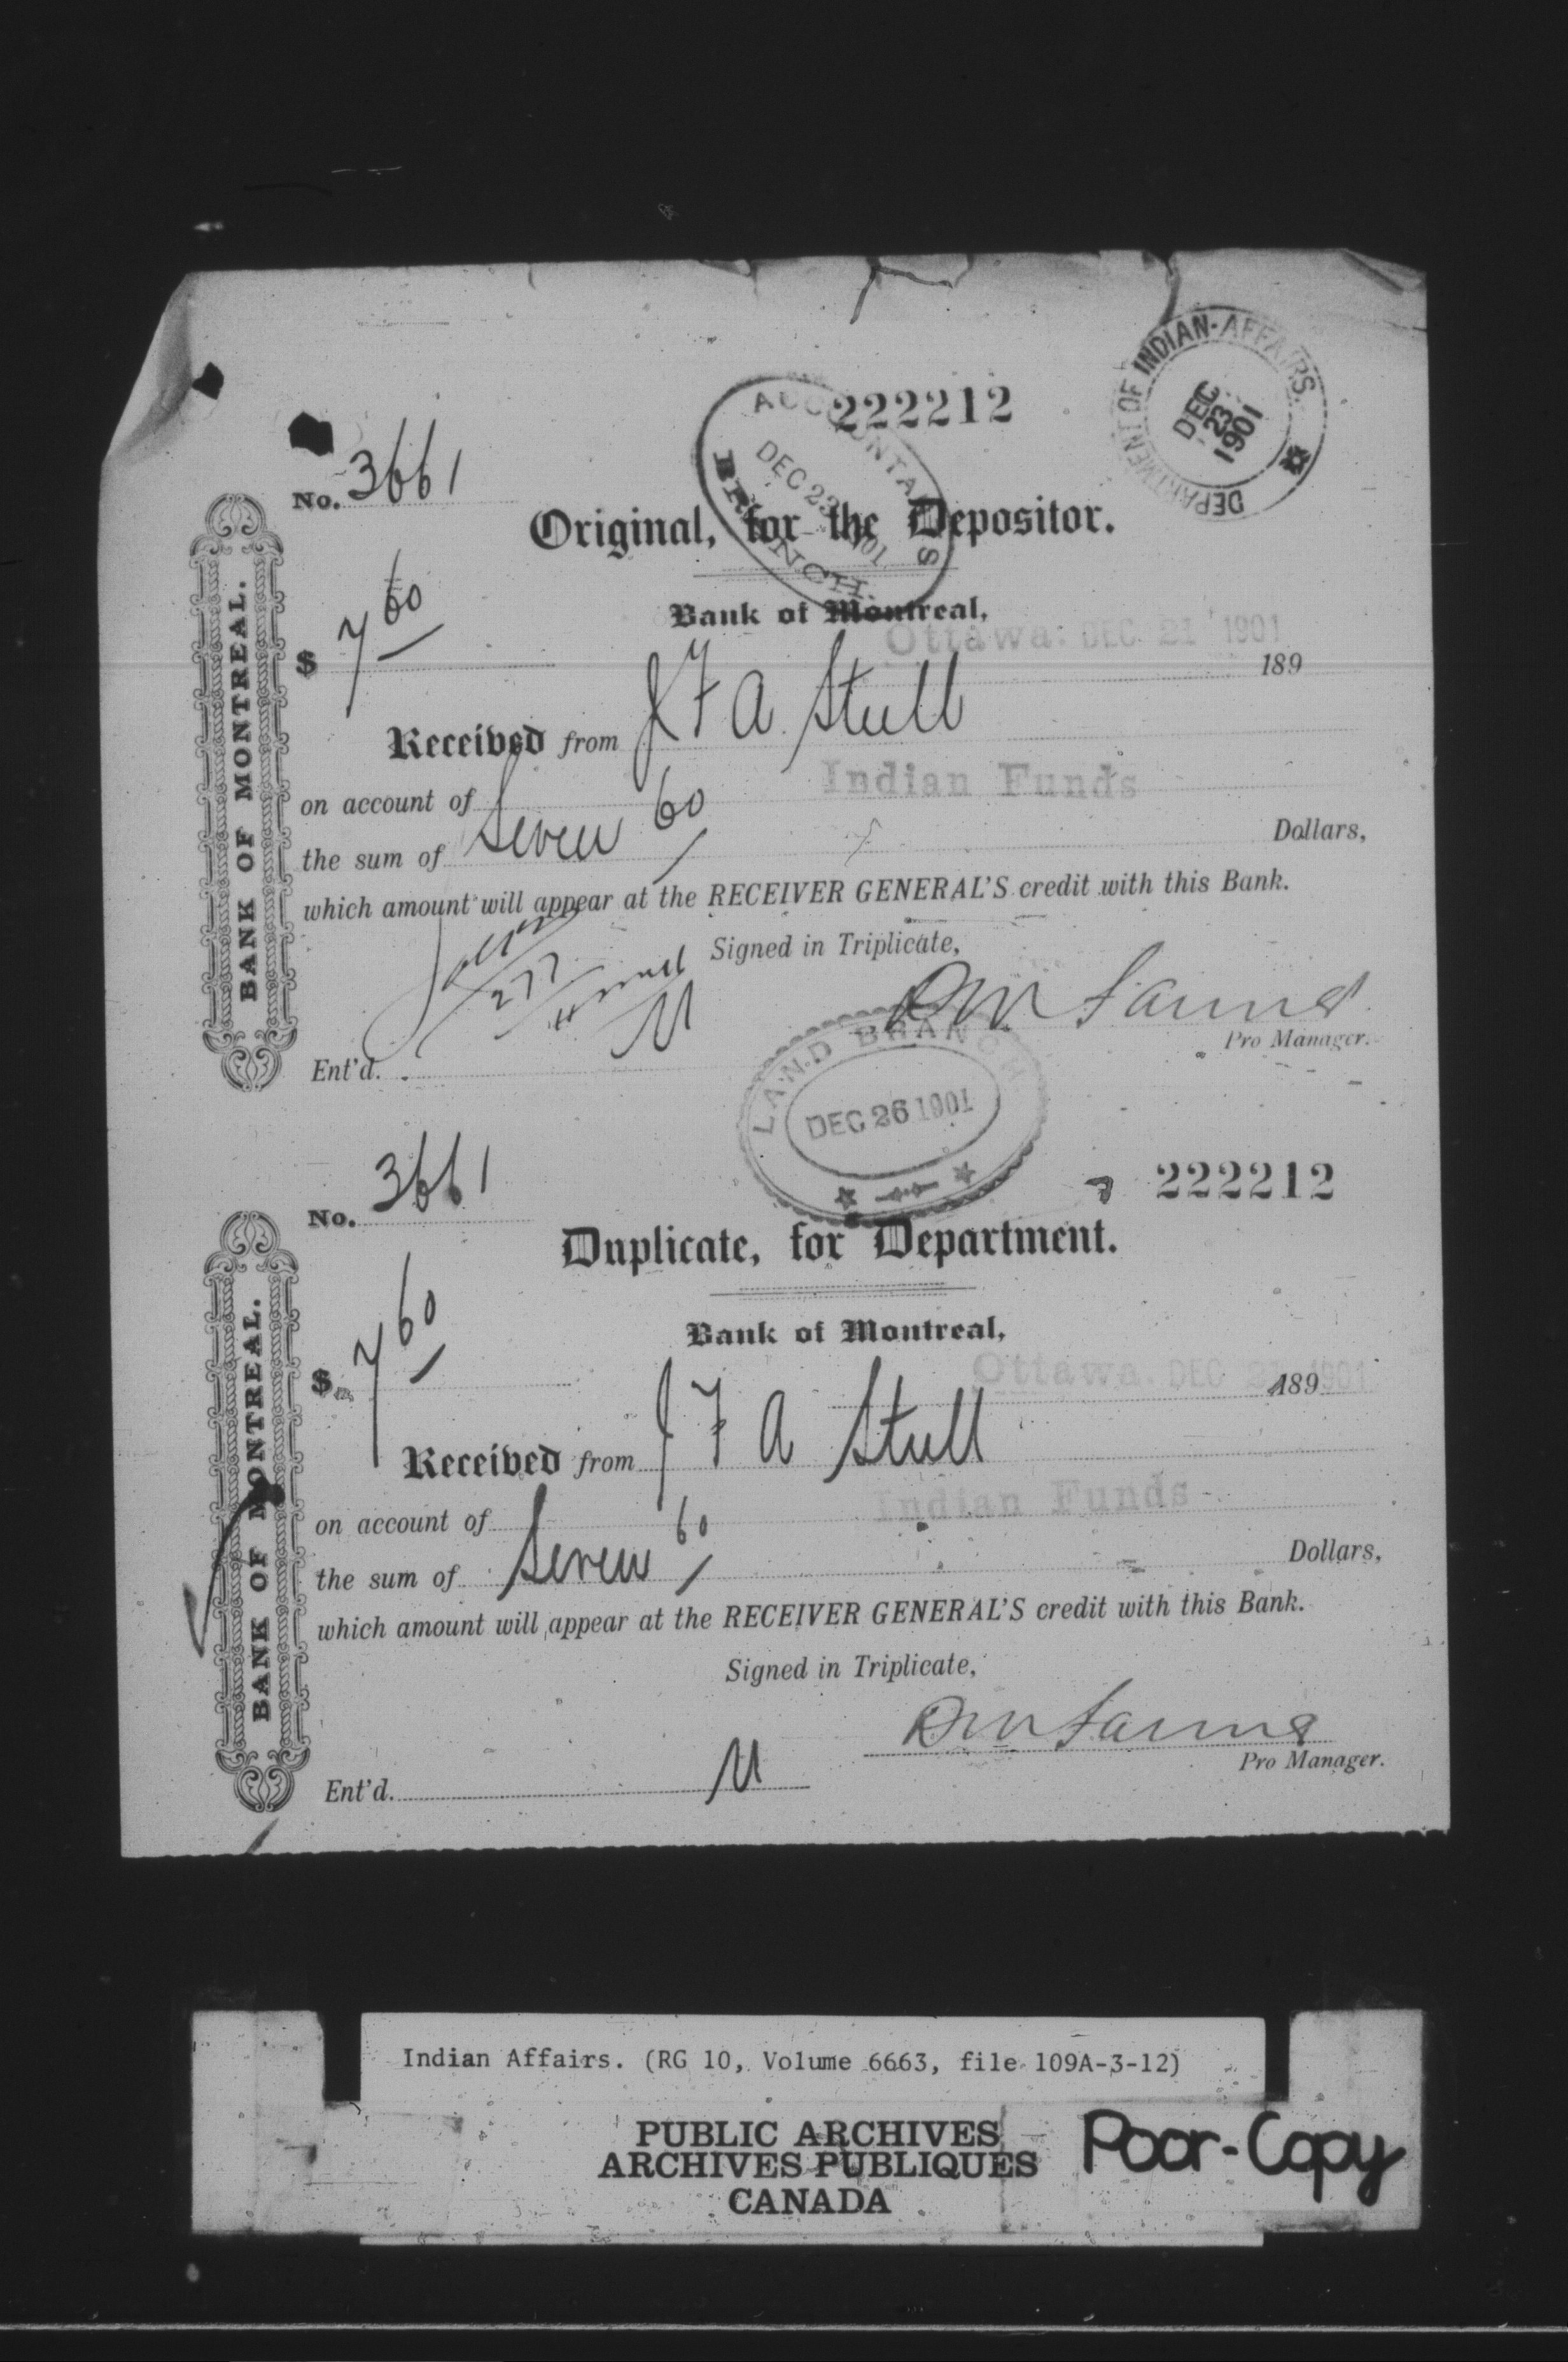 DEPARTMENT OF INDIAN-AFFAIRS.
DEC 23 1901
222212
ACCOUNTANT'S BRANCH.
DEC 23 1901
No. 3661
Original, for the Depositor.
BANK OF MONTREAL.
Bank of Montreal,
Ottawa. DEC. 21 1901
$ 7 60
189
Received from J F A Stull
on account of Indian Funds
the sum of Seven 60 Dollars,
which amount will appear at the RECEIVER GENERAL'S credit with this Bank.
277
Signed in Triplicate,
Pro Manager.
Ent'd.
LAND BRANCH
DEC 26 1901
222212
No. 3661
Duplicate, for Department.
BANK OF MONTREAL.
Bank of Montreal,
Ottawa. DEC 21 1901
$ 7 60
189
Received from J F A Stull
on account of Indian Funds
the sum of Seven 60 Dollars,
which amount will appear at the RECEIVER GENERAL'S credit with this Bank.
Signed in Triplicate,
Pro Manager.
Ent'd.
Indian Affairs. (RG 10, Volume 6663, file 109A-3-12)
PUBLIC ARCHIVES
ARCHIVES PUBLIQUES
CANADA
Poor-Copy